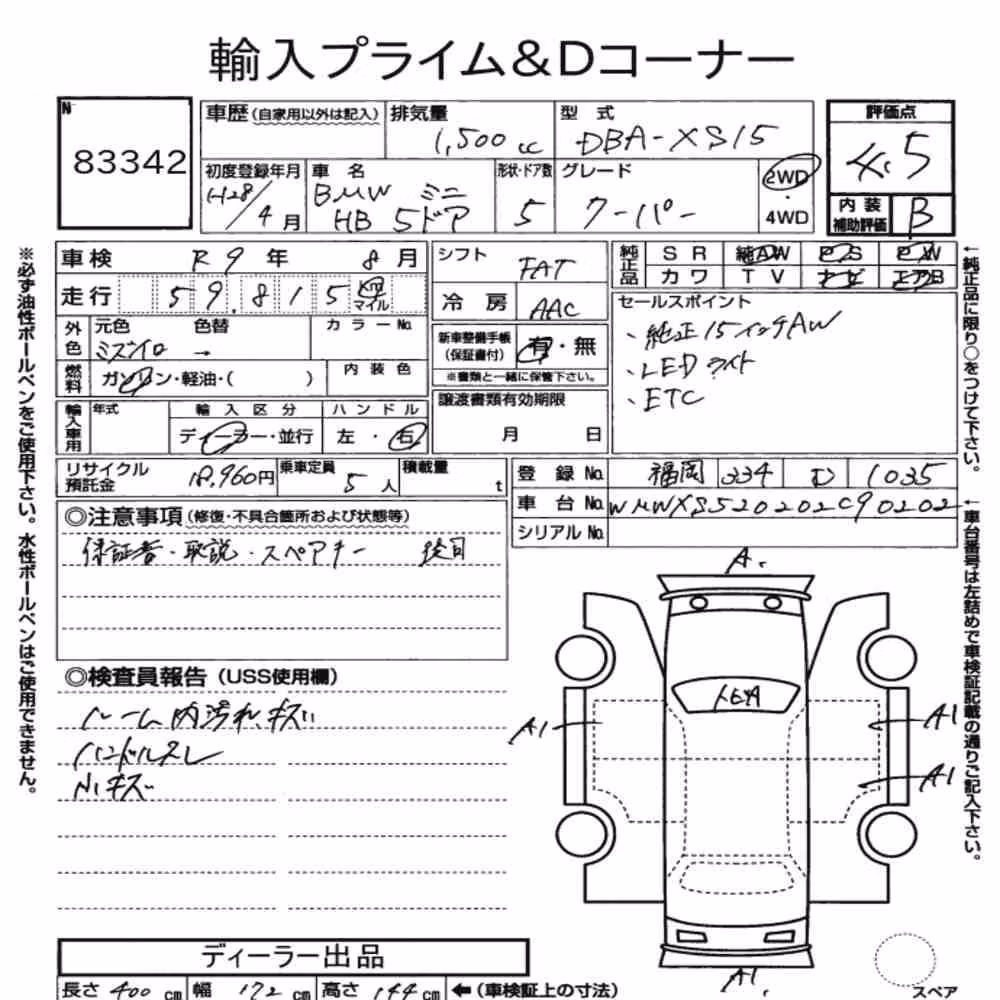 輸入プライム&Dコーナー
N
83342
車歴 (自家用以外は記入)
排気量 1,500 cc
型 式 DBA-XS15
評価点
4.5
初度登録年月 H28/4月
車 名 BMW ミニ
HB 5ドア
形状・ドア数 5
グレード クーパー
2WD
・
4WD
内 装
補助評価 B
車検 R9 年 8 月
走行 59.815 km マイル
外色
元色 色替 カラーNo.
ミズイロ →
燃料 ガソリン・軽油・( )
内 装 色
輸入車用
年式
輸 入 区 分 ハ ン ド ル
ディーラー・並行 左 ・ 右
シフト FAT
冷 房 AAC
新車整備手帳
(保証書付) 有・無
※書類と一緒に保管下さい。
譲渡書類有効期限
月 日
純正品
S R 純正AW P S P W
カ ワ T V ナビ エアB
セールスポイント
・純正15インチAW
・LEDライト
・ETC
リサイクル
預託金 18,960円
乗車定員 5 人
積載量 t
登 録 No. 福岡 334 D 1035
車 台 No. WMWXS520202C90202
シリアル No.
◎注意事項 (修復・不具合箇所および状態等)
保証書・取説・スペアキー 後日
◎検査員報告 (USS使用欄)
ルーム内汚れ.キズ
ハンドルスレ
小キズ
A.
A1
A1
A1
A1
スペア
ディーラー出品
長さ 400 cm 幅 172 cm 高さ 144 cm ←(車検証上の寸法)
※必ず油性ボールペンをご使用下さい。水性ボールペンはご使用できません。
←純正品に限り○をつけて下さい。
←車台番号は左詰めで車検証記載の通りご記入下さい。